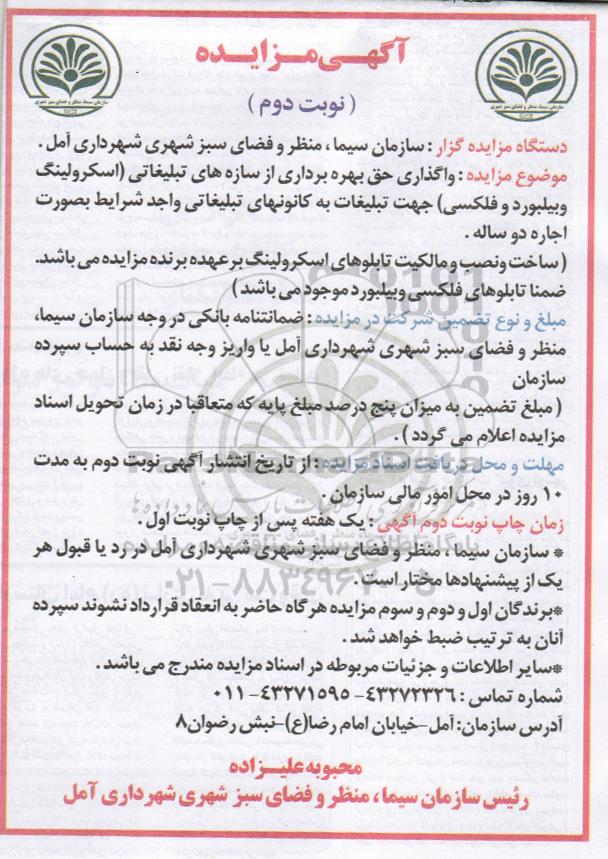 آگهی مزایده
( نوبت دوم )
دستگاه مزایده گزار : سازمان سیما ، منظر و فضای سبز شهری شهرداری آمل .
موضوع مزایده : واگذاری حق بهره برداری از سازه های تبلیغاتی (اسکرولینگ
وبیلبورد و فلکسی) جهت تبلیغات به کانونهای تبلیغاتی واجد شرایط بصورت
اجاره دو ساله .
( ساخت ونصب و مالکیت تابلوهای اسکرولینگ بر عهده برنده مزایده می باشد.
ضمنا تابلوهای فلکسی وبیلبورد موجود می باشد )
مبلغ و نوع تضمین شرکت در مزایده : ضمانتنامه بانکی در وجه سازمان سیما،
منظر و فضای سبز شهری شهرداری آمل یا واریز وجه نقد به حساب سپرده
سازمان
( مبلغ تضمین به میزان پنج درصد مبلغ پایه که متعاقبا در زمان تحویل اسناد
مزایده اعلام می گردد ) .
مهلت و محل دریافت اسناد مزایده : از تاریخ انتشار آگهی نوبت دوم به مدت
۱۰ روز در محل امور مالی سازمان .
زمان چاپ نوبت دوم آگهی : یک هفته پس از چاپ نوبت اول .
* سازمان سیما ، منظر و فضای سبز شهری شهرداری آمل در رد یا قبول هر
یک از پیشنهادها مختار است .
*برندگان اول و دوم و سوم مزایده هرگاه حاضر به انعقاد قرارداد نشوند سپرده
آنان به ترتیب ضبط خواهد شد .
*سایر اطلاعات و جزئیات مربوطه در اسناد مزایده مندرج می باشد .
شماره تماس : ۴۳۲۷۲۳۲۶- ۴۳۲۷۱۵۹۵-۰۱۱
آدرس سازمان: آمل-خیابان امام رضا(ع)-نبش رضوان۸
محبوبه علیزاده
رئیس سازمان سیما ، منظر و فضای سبز شهری شهرداری آمل